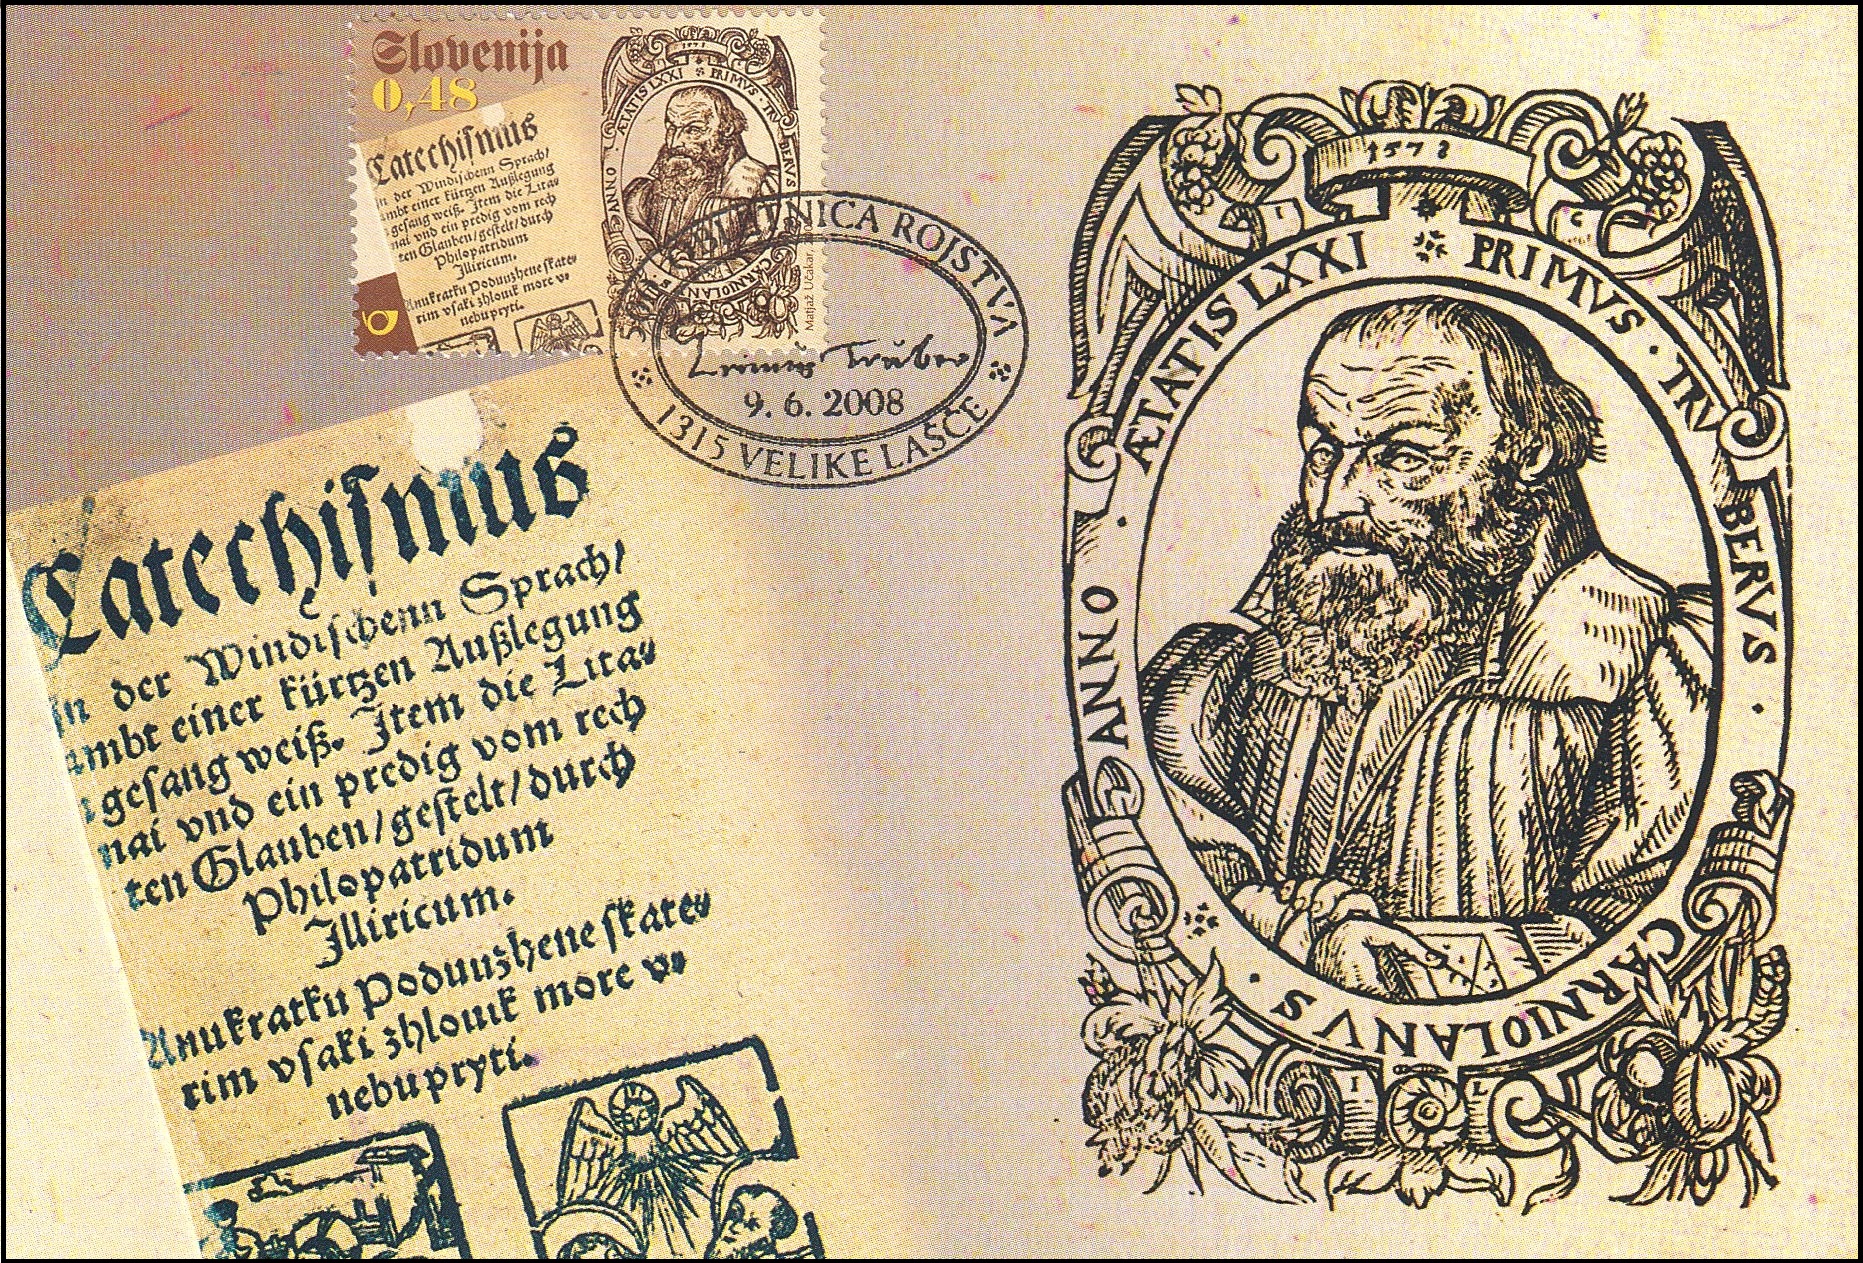 Slovenija
0,48
Catechiſmus
in der Windiſchenn Sprach/
ambt einer kürtzen Außlegung
geſang weiß. Item die Lita⸗
nai vnd ein predig vom rech
ten Glauben/geſtelt/durch
Philopatridum
Illiricum.
Anukratku Poduuzhene ſkate⸗
rim vſaki zhlouik more v⸗
nebu pryti.
1578
ÆTATIS LXXI * PRIMVS · TRVBERVS
CARNIOLANVS
ANNO
Matjaž Učakar,
OBLETNICA ROJSTVA
Primus Truber
9. 6. 2008
1315 VELIKE LAŠČE
Catechiſmus
in der Windiſchenn Sprach/
ambt einer kürtzen Außlegung
geſang weiß. Item die Lita⸗
nai vnd ein predig vom rech
ten Glauben/geſtelt/durch
Philopatridum
Illiricum.
Anukratku Poduuzhene ſkate⸗
rim vſaki zhlouik more v⸗
nebu pryti.
1578
ÆTATIS LXXI * PRIMVS · TRVBERVS ·
CARNIOLANVS ·
ANNO ·
I L